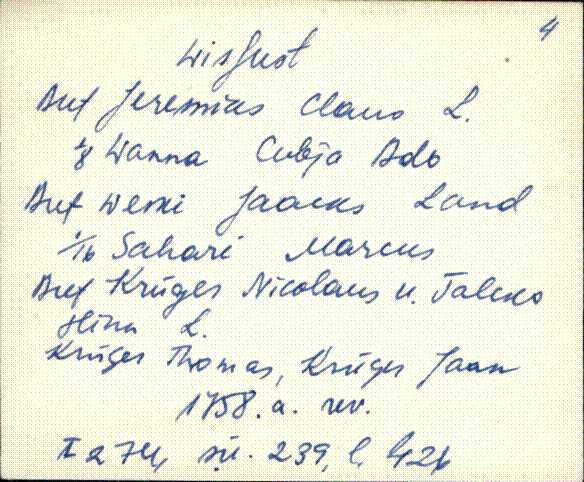 4
Wisjust
Auf Jeremias Claus L.
1/8 Wanna Cubja Ado
Auf Weski Jaacks Land
1/16 Sahari Marcus
Auf Krüger Nicolaus u. Taleko
Hinn L.
Krüger Thomas, Krüger Jaan
1758. a. rev.
su. 239, l. 42